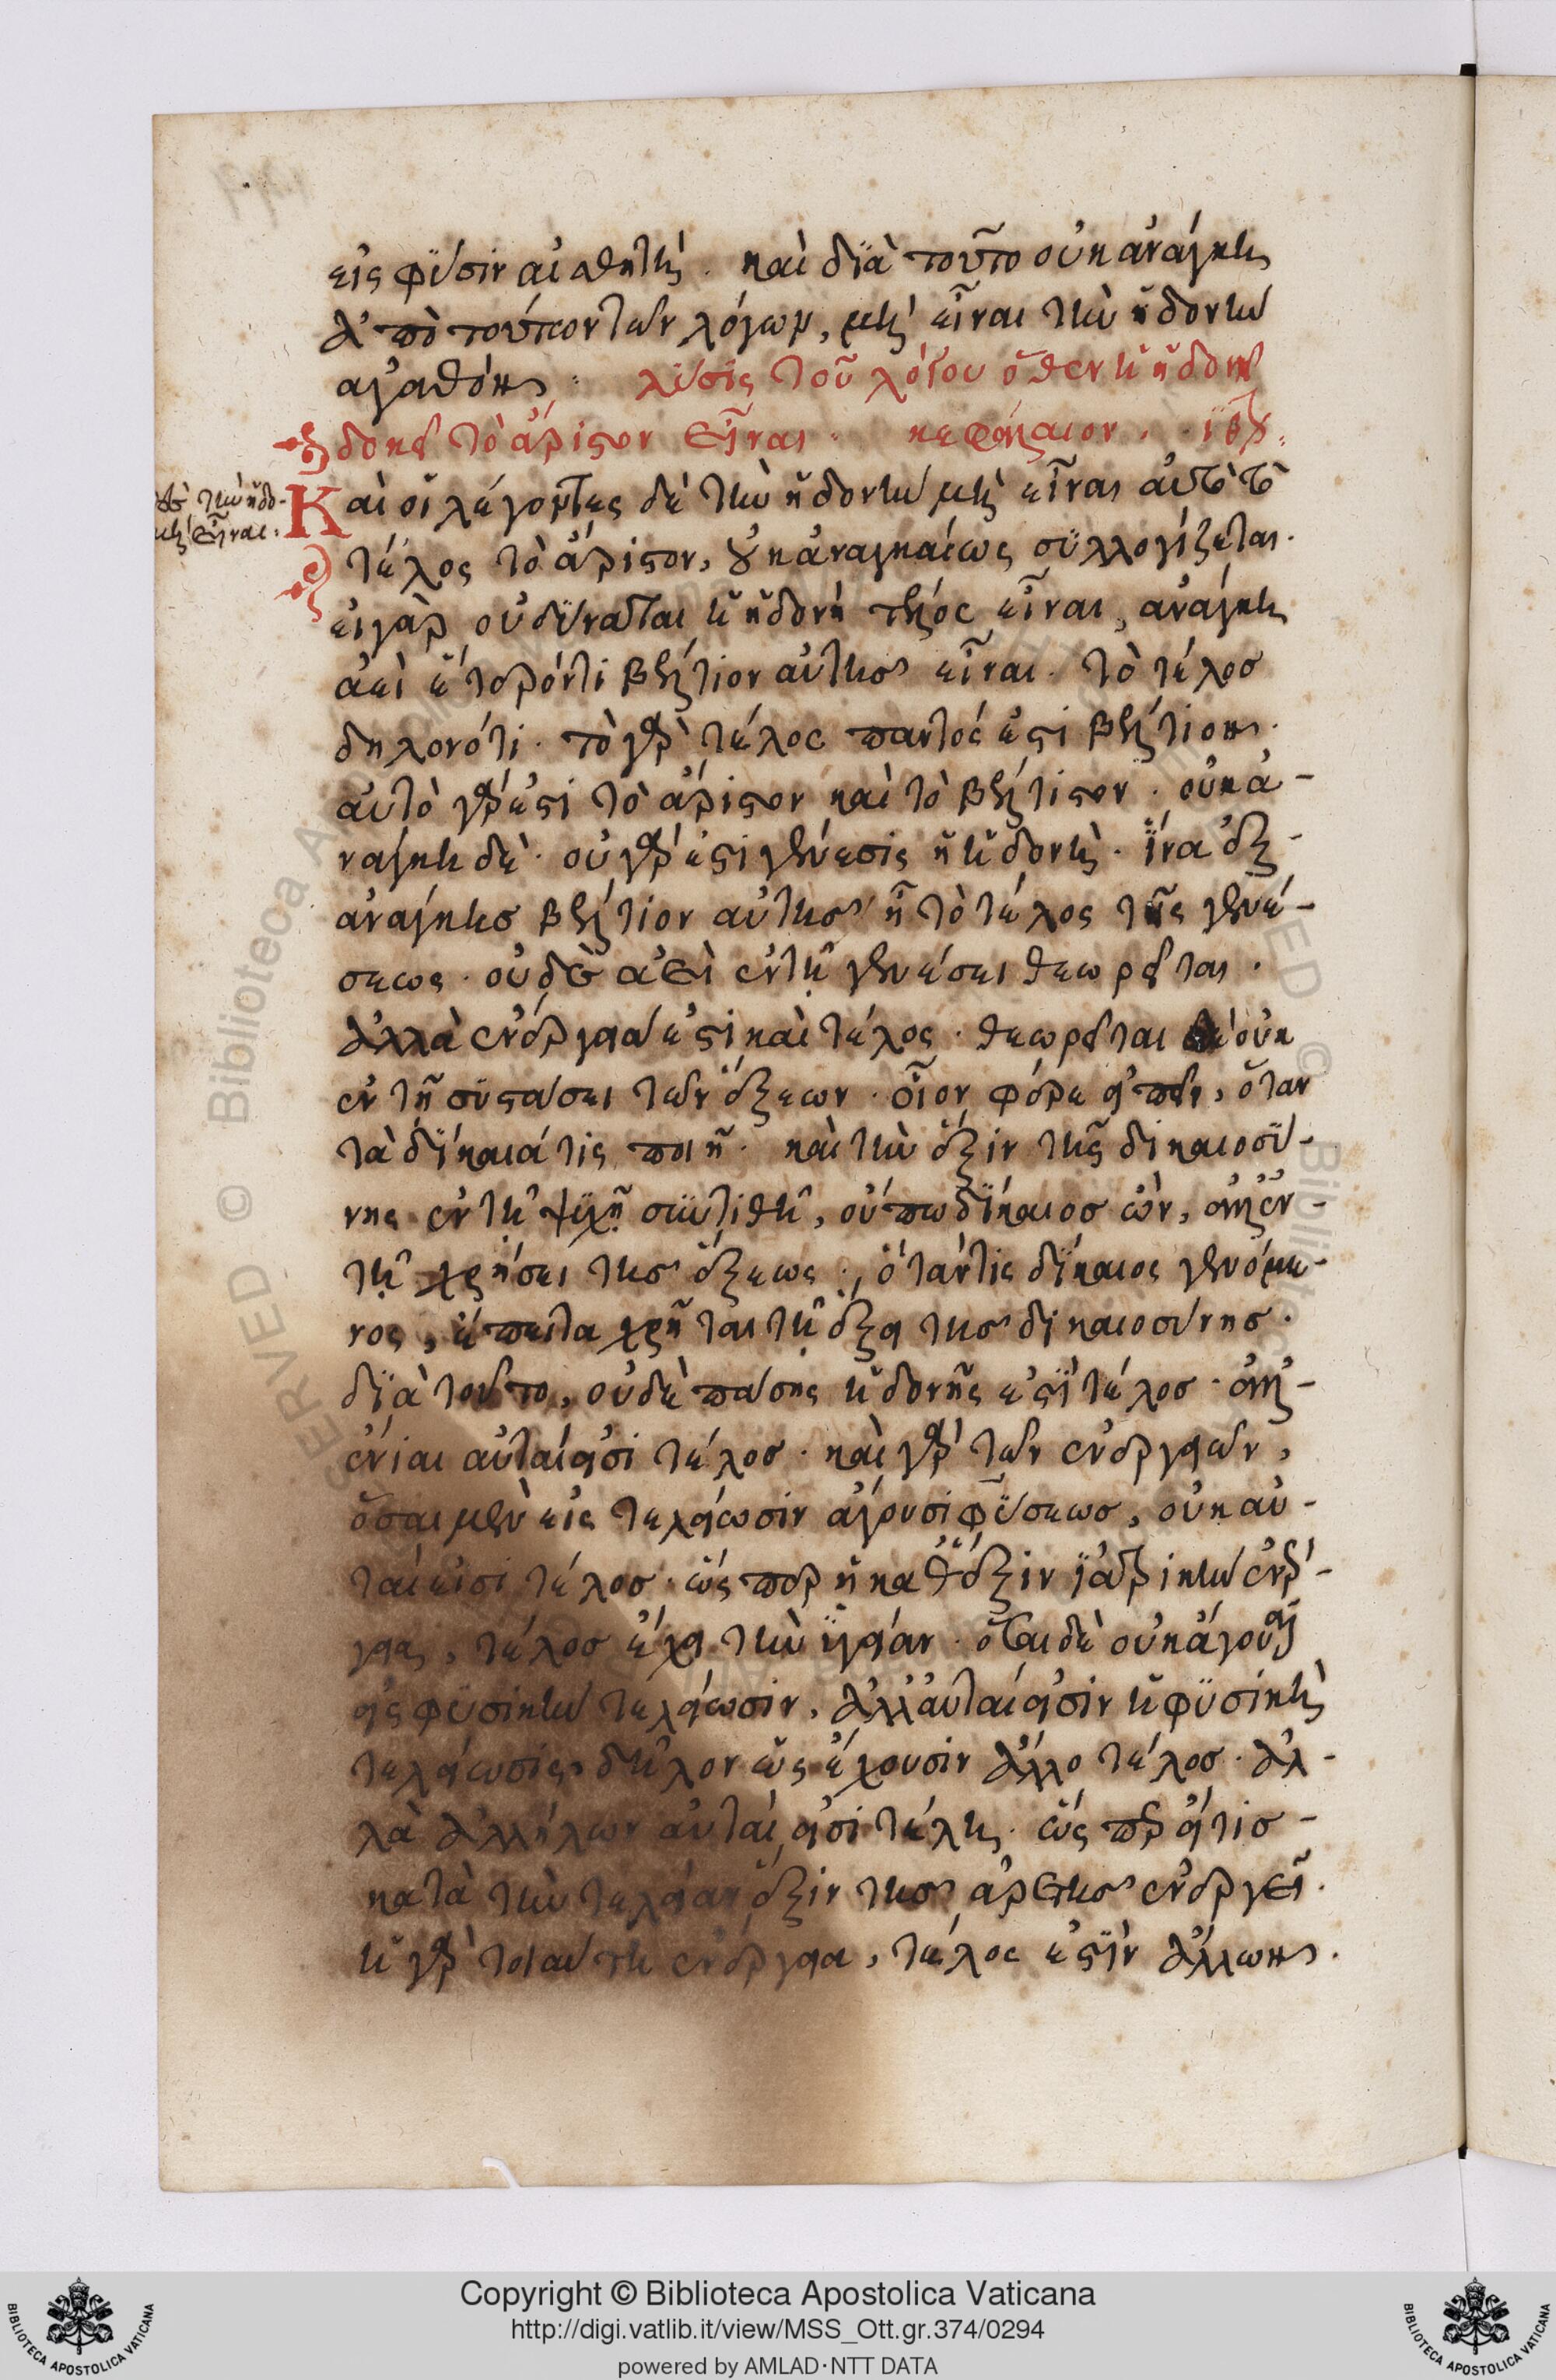 εἰς φύσιν αἰσθητή. καὶ διὰ τοῦτο οὐκ ἀνάγκη
ἀπὸ τούτων τῶν λόγων, μὴ εἶναι τὴν ἡδονὴν
ἀγαθόν: λύσις τοῦ λόγου ὅθεν ἡ ἡδονὴ
δοκεῖ τὸ ἄριστον εἶναι. κεφάλαιον.
τὴν ἡδο-
μὴ εἶναι:
Καὶ οἱ λέγοντες δὲ τὴν ἡδονὴν μὴ εἶναι αὐτὸ τὸ
τέλος τὸ ἄριστον, οὐκ ἀναγκαίως συλλογίζεται.
εἰ γὰρ οὐ δύναται ἡ ἡδονὴ τέλος εἶναι, ἀνάγκη
ἀεὶ ἕτερόν τι βέλτιον αὐτῆς εἶναι. τὸ τέλος
δηλονότι. τὸ γὰρ τέλος παντός ἐστι βέλτιον.
αὐτὸ γάρ ἐστι τὸ ἄριστον καὶ τὸ βέλτιστον. οὐκ ἀ-
νάγκη δέ. οὐ γάρ ἐστι γένεσις ἡ ἡδονή. ἵνα ἐξ
ἀνάγκης βέλτιον αὐτῆς ἦ τὸ τέλος τῆς γενέ-
σεως. οὐδὲ ἀεὶ ἐν τῇ γενέσει θεωρεῖται.
ἀλλὰ ἐνέργειά ἐστι καὶ τέλος. θεωρεῖται δὲ οὐκ
ἐν τῇ συστάσει τῶν ἕξεων. οἷον φέρε εἰπεῖν, ὅταν
τὰ δίκαιά τις ποιῇ. καὶ τὴν ἕξιν τῆς δικαιοσύ-
νης ἐν τῇ ψυχῇ συντιθῇ, οὔπω δίκαιος ὤν, ἀλλ' ἐν
τῇ χρήσει τῆς ἕξεως, ὅταν τις δίκαιος γενόμε-
νος, ἔπειτα χρῆται τῇ ἕξει τῆς δικαιοσύνης.
διὰ τοῦτο, οὐδὲ πάσης ἡδονῆς ἐστὶ τέλος. ἀλλ'
ἔνιαι αὐταί εἰσι τέλος. καὶ γὰρ τῶν ἐνεργειῶν,
ὅσαι μὲν εἰς τελείωσιν ἄγουσι φύσεως, οὐκ αὐ-
ταί εἰσι τέλος. ὥσπερ ἡ καθ' ἕξιν ἰατρικὴν ἐνέρ-
γεια, τέλος ἔχει τὴν ὑγείαν. ὅσαι δὲ οὐκ ἄγουσιν
εἰς φυσικὴν τελείωσιν, ἀλλ' αὐταί εἰσιν ἡ φυσικὴ
τελείωσις, δῆλον ὡς ἔχουσιν ἄλλο τέλος. ἀλ-
λὰ ἀλλήλων αὐταί εἰσι τέλη. ὥσπερ εἴ τις
κατὰ τὴν τελείαν ἕξιν τῆς ἀρετῆς ἐνεργεῖ.
ἡ γὰρ τοιαύτη ἐνέργεια, τέλος ἐστὶν ἄλλων.
Copyright © Biblioteca Apostolica Vaticana
http://digi.vatlib.it/view/MSS_Ott.gr.374/0294
powered by AMLAD·NTT DATA